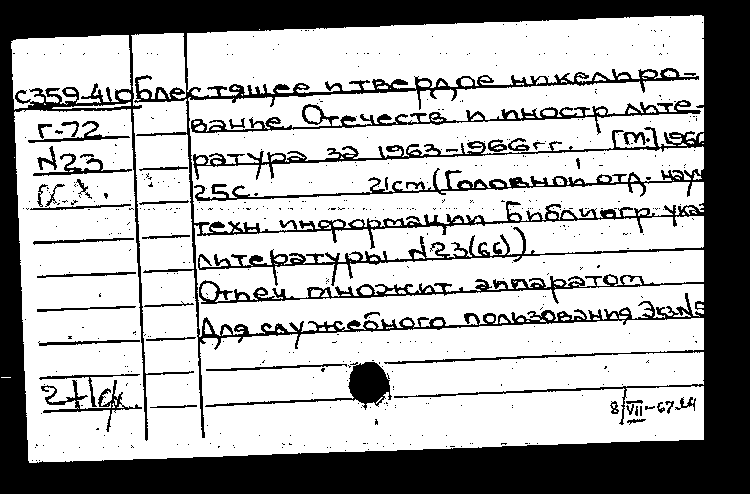 С359-410 Блестящее и твердое никелиро-
Г-72 вание. Отечеств и иностр лите-
N23 ратура за 1963-1966гг. [М.], 1966
осх. 25с. 21см. (Головной отд. науч
техн. информации Библиогр. указ
литературы N23(66)).
Отпеч. множит. аппаратом.
Для служебного пользования Экз N5
2+1сх.
8/VII-67